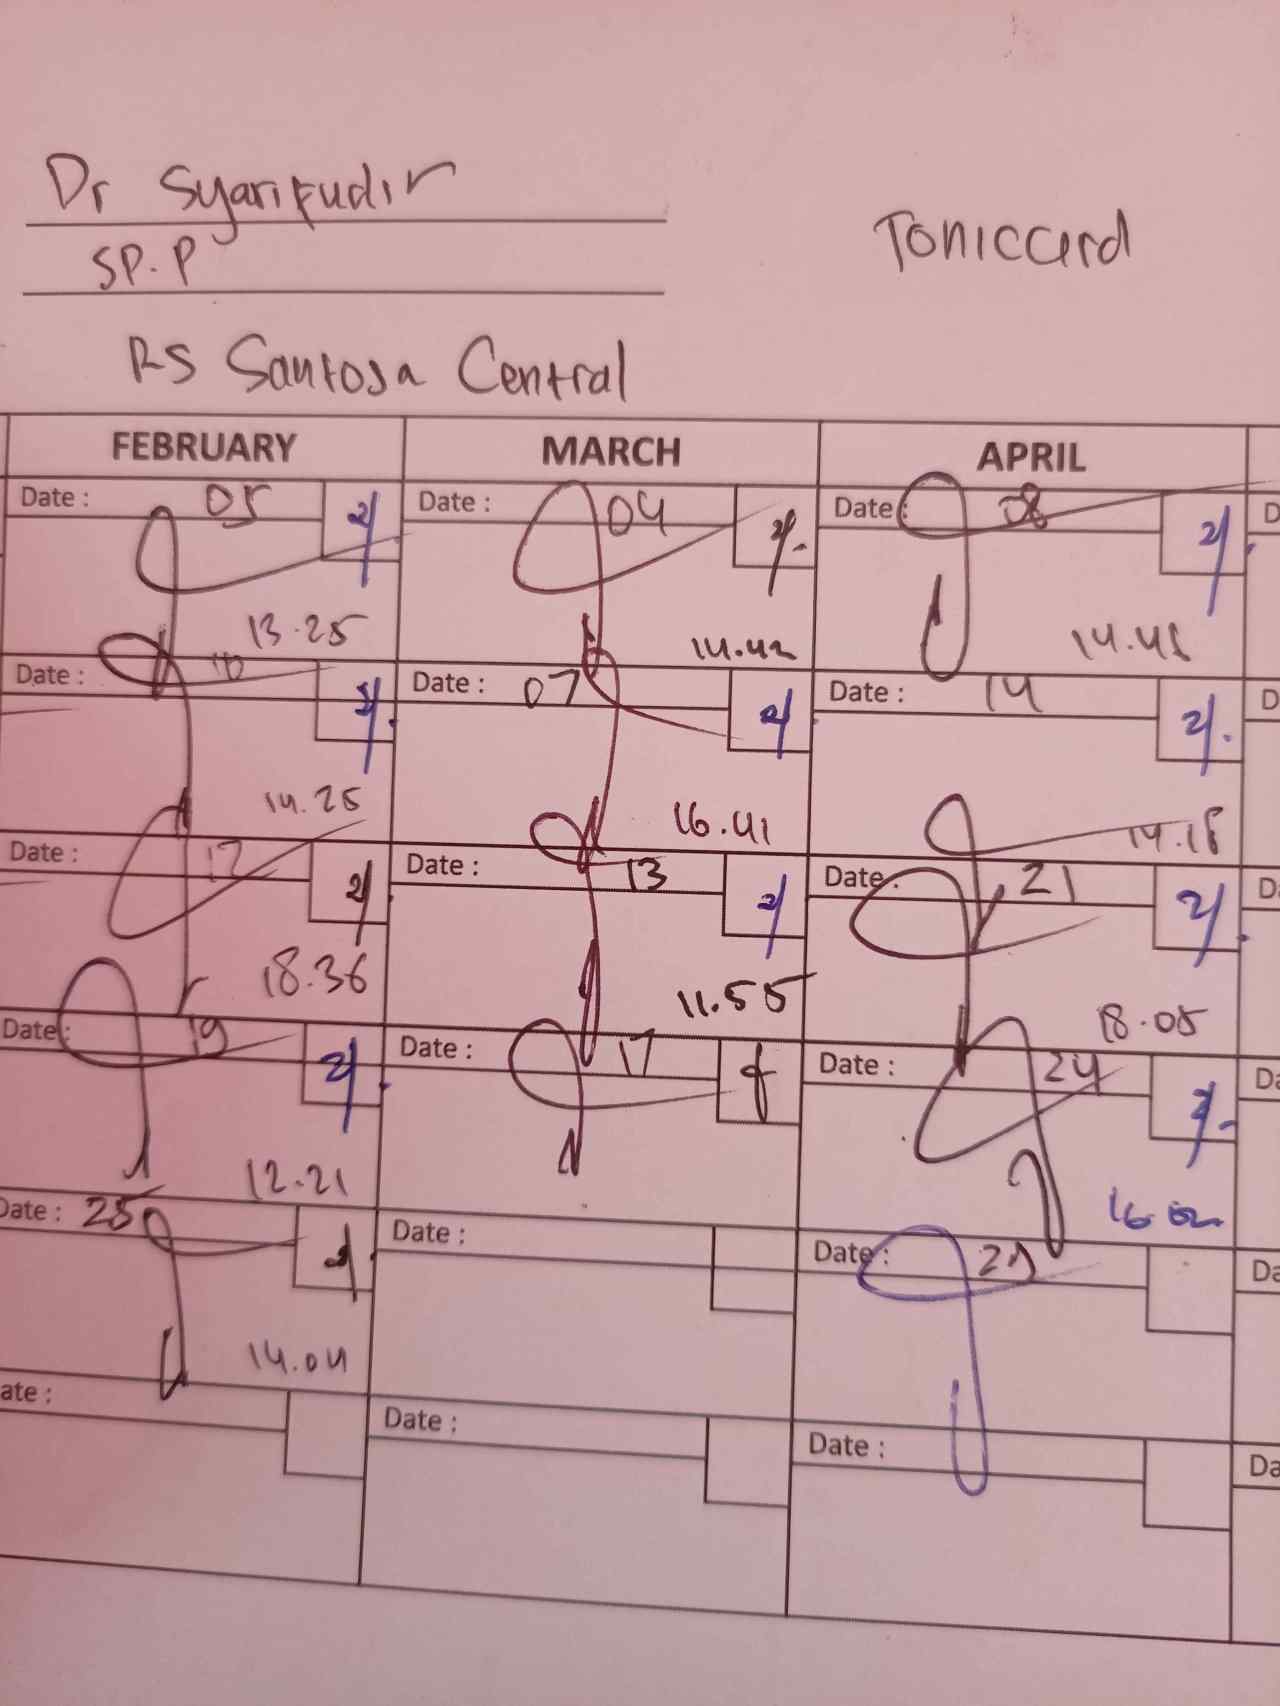 Dr Syarifudir
SP. P
Toniccard
RS Santosa Central
FEBRUARY MARCH APRIL
Date : 05 Date : 04 Date : 08 D
13.25 14.42 14.48
Date : 10 Date : 07 Date : 14 D
14.25 16.41 14.18
Date : 17 Date : 13 Date : 21 D
18.36 11.55 18.05
Date : 19 Date : 17 Date : 24 Da
12.21 16.02
Date : 25 Date : Date : 29 Da
14.04
ate : Date : Date : Da